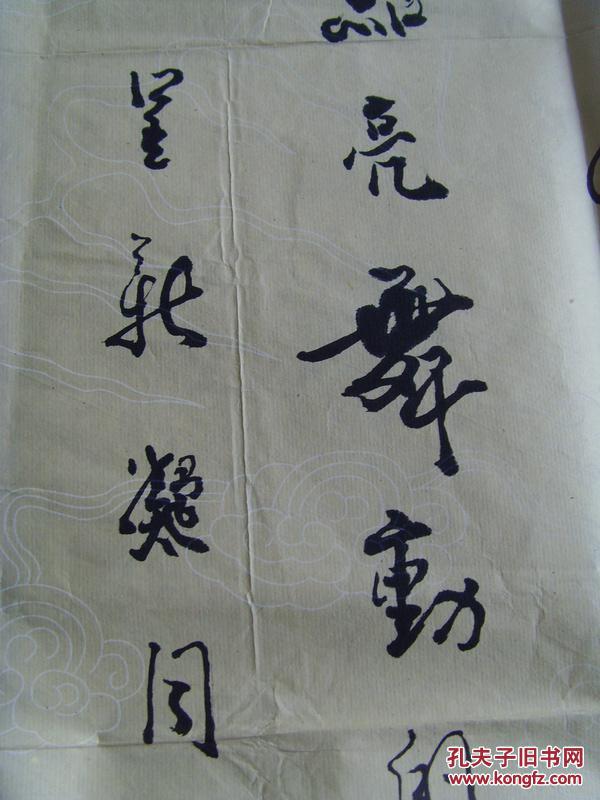 亮舞動的
呈新凝月
孔夫子旧书网
www.kongfz.com